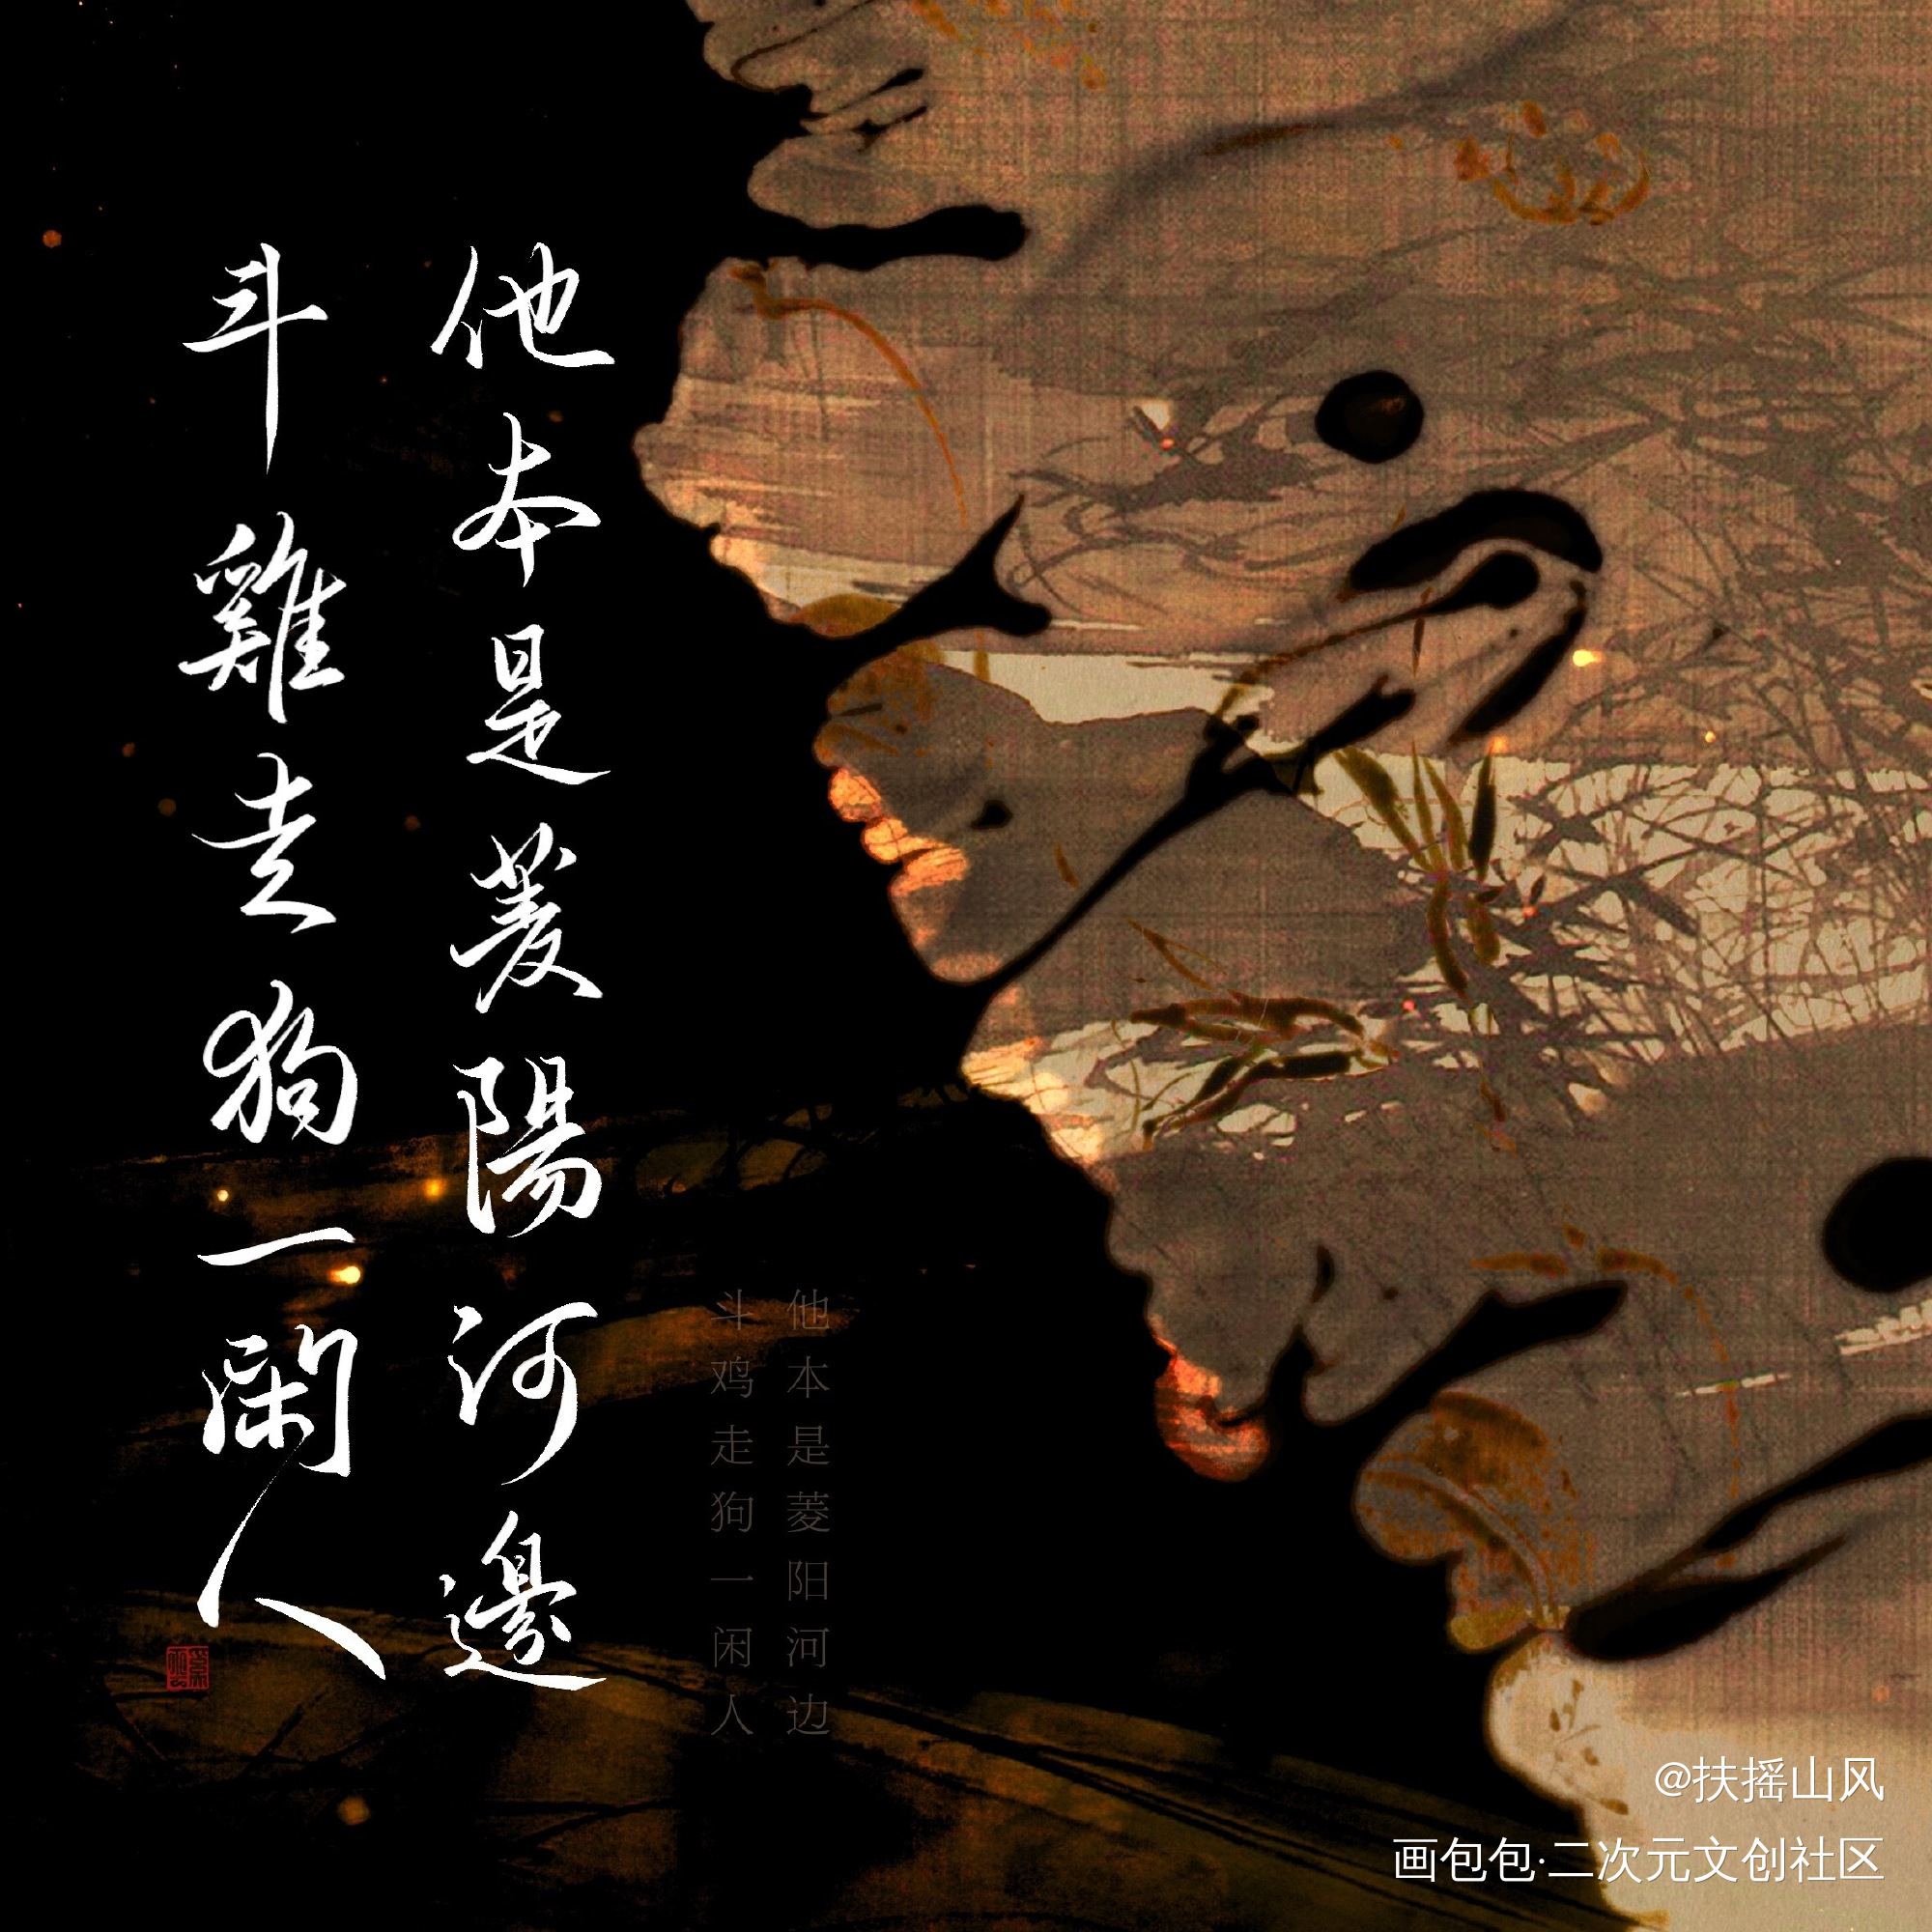 他本是菱陽河邊
斗雞走狗一閑人
他本是菱阳河边
斗鸡走狗一闲人
@扶摇山风
画包包·二次元文创社区